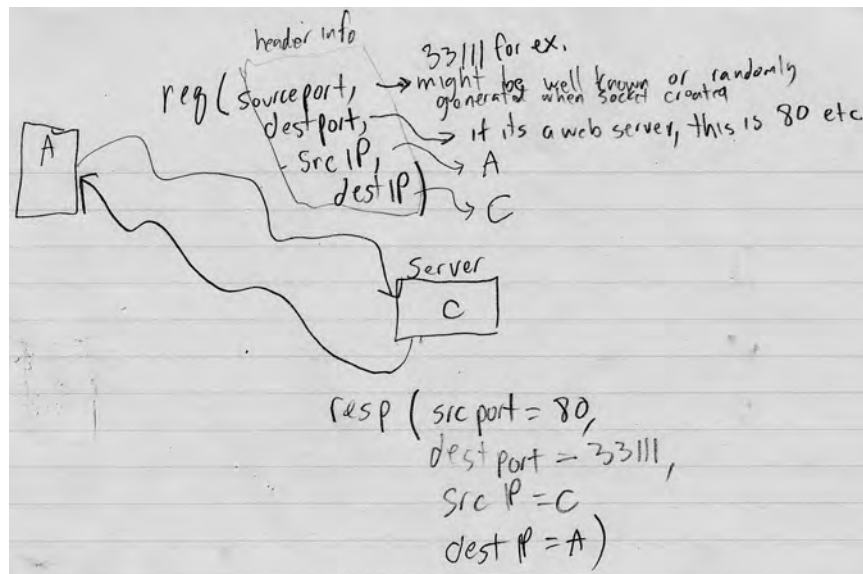 header info
33111 for ex.
req(sourceport, → might be well known or randomly
generated when socket created
destport, → if its a web server, this is 80 etc
src IP, → A
dest IP) → C
A
Server
C
resp (src port = 80,
dest port = 33111,
src IP = C
dest IP = A)